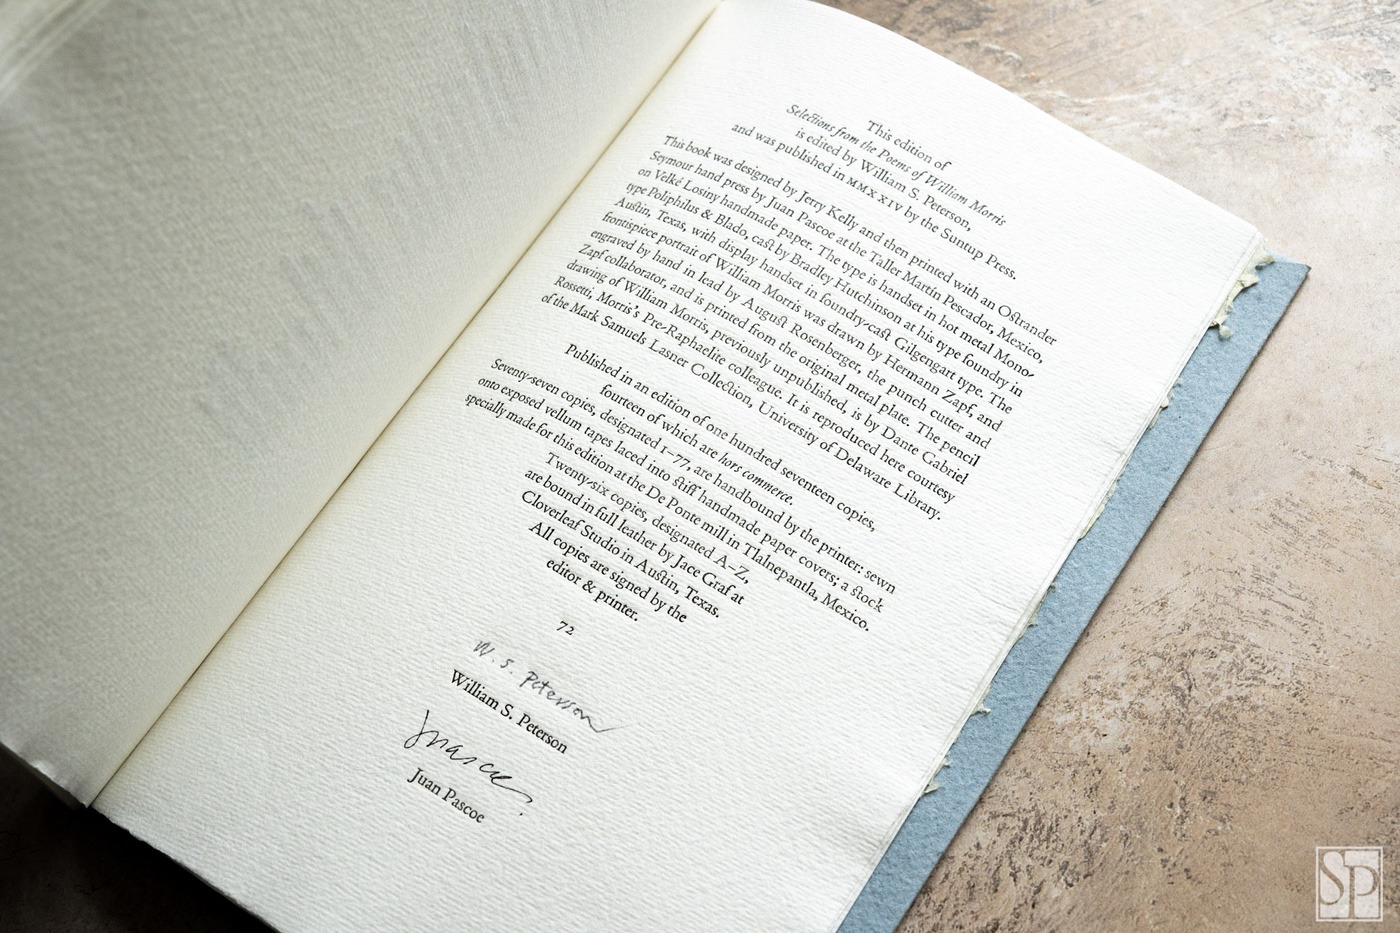 This edition of
Selections from the Poems of William Morris
is edited by William S. Peterson,
and was published in MMXXIV by the Suntup Press.
This book was designed by Jerry Kelly and then printed with an Ostrander
Seymour hand press by Juan Pascoe at the Taller Martín Pescador, Mexico,
on Velké Losiny handmade paper. The type is handset in hot metal Mono-
type Poliphilus & Blado, cast by Bradley Hutchinson at his type foundry in
Austin, Texas, with display handset in foundry-cast Gilgengart type. The
frontispiece portrait of William Morris was drawn by Hermann Zapf, and
engraved by hand in lead by August Rosenberger, the punch cutter and
Zapf collaborator, and is printed from the original metal plate. The pencil
drawing of William Morris, previously unpublished, is by Dante Gabriel
Rossetti, Morris's Pre-Raphaelite colleague. It is reproduced here courtesy
of the Mark Samuels Lasner Collection, University of Delaware Library.
Published in an edition of one hundred seventeen copies,
fourteen of which are hors commerce.
Seventy-seven copies, designated 1–77, are handbound by the printer: sewn
onto exposed vellum tapes laced into stiff handmade paper covers; a stock
specially made for this edition at the De Ponte mill in Tlalnepantla, Mexico.
Twenty-six copies, designated A–Z,
are bound in full leather by Jace Graf at
Cloverleaf Studio in Austin, Texas.
All copies are signed by the
editor & printer.
72
W. S. Peterson
William S. Peterson
Juan Pascoe
SP